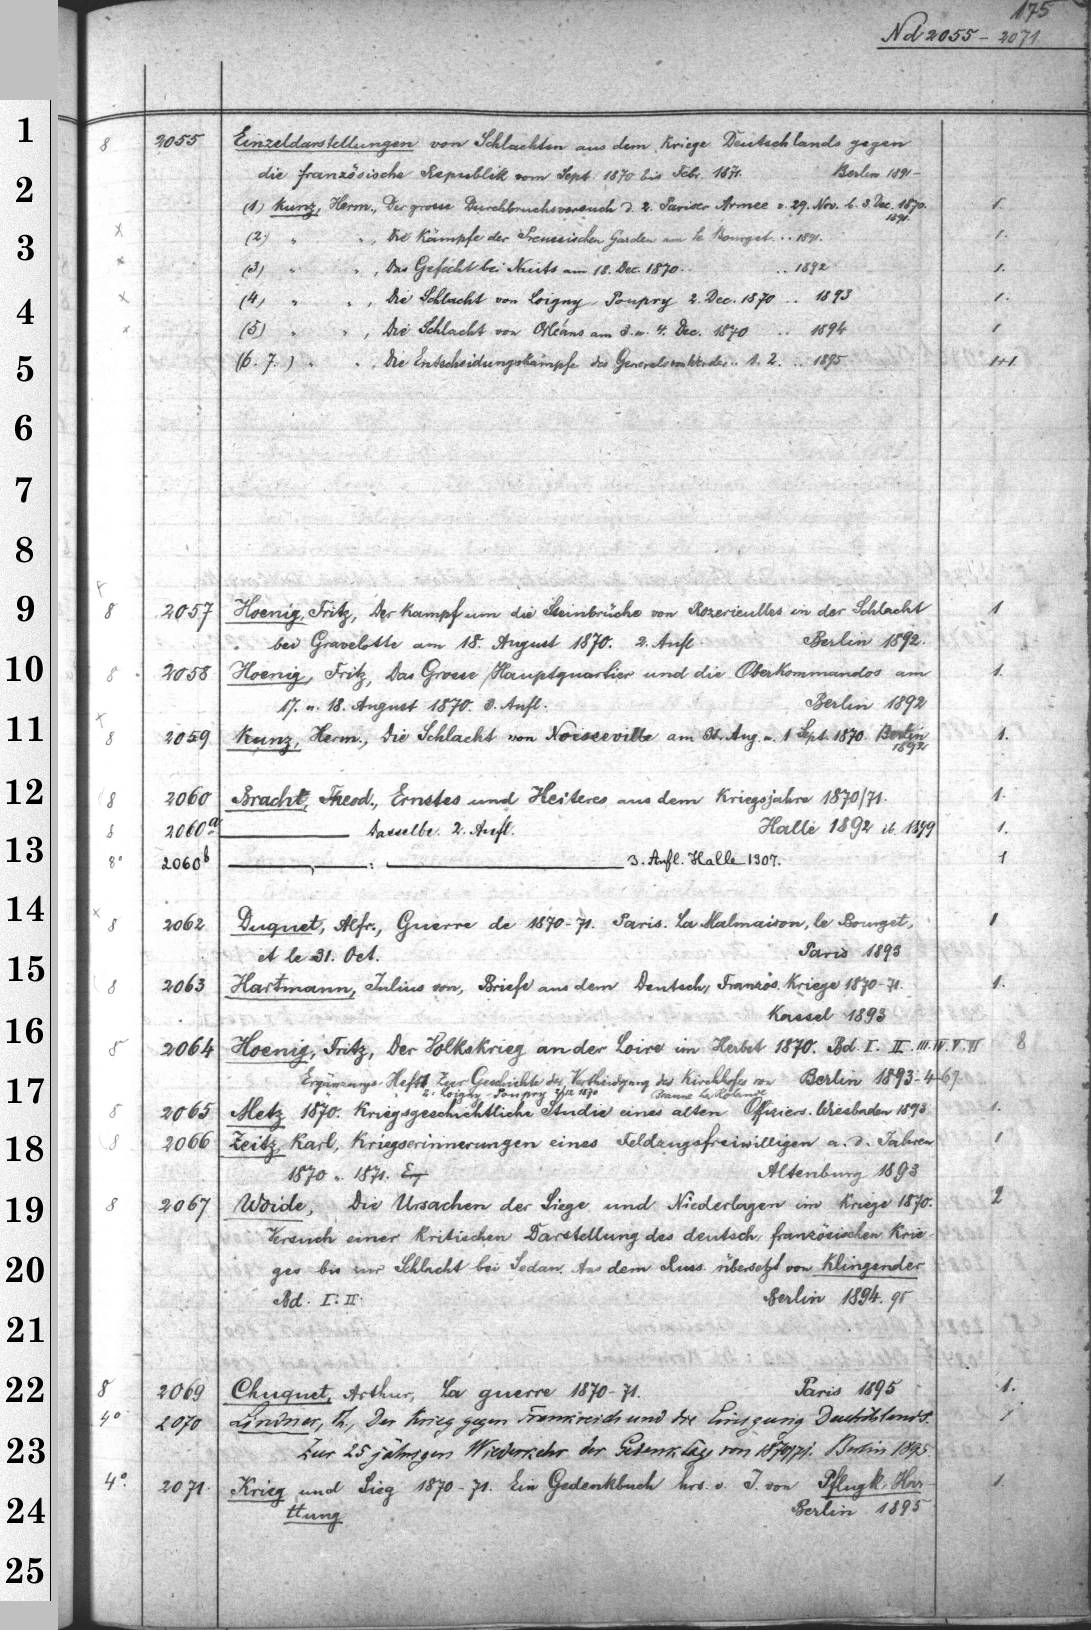 175
Nd 2055 - 2071
8 2055 Einzeldarstellungen von Schlachten aus dem Kriege Deutschlands gegen
die französische Republik vom Sept. 1870 bis Febr. 1871. Berlin 1891-
(1) Kunz, Herm., Der grosse Durchbruchsversuch d. 2. Pariser Armee v. 29. Nov. b. 3. Dec. 1870. 1.
1891.
x (2) " " , Die Kämpfe der Preussischen Garden um le Bourget... 1891. 1.
x (3) " " , Das Gefecht bei Nuits am 18. Dec. 1870. .. 1892 1.
x (4) " " , Die Schlacht von Loigny-Poupry 2. Dec. 1870 .. 1893 1.
x (5) " " , Die Schlacht von Orléans am 3. u. 4. Dec. 1870 .. 1894 1
(6. 7.) " " , Die Entscheidungskämpfe des Generals von Werder.. 1. 2. .. 1895 1+1
8 2057 Hoenig, Fritz, Der Kampf um die Steinbrüche von Rozerieulles in der Schlacht 1
bei Gravelotte am 18. August 1870. 2. Aufl. Berlin 1892.
8 2058 Hoenig, Fritz, Das Grosse Hauptquartier und die Oberkommandos am 1.
17. u. 18. August 1870. 3. Aufl. Berlin 1892
x
8 2059 Kunz, Herm., Die Schlacht von Noisseville am 31. Aug. u. 1 Sept. 1870 Berlin 1.
1892
8 2060 Bracht, Theod., Ernstes und Heiteres aus dem Kriegsjahre 1870/71. 1.
8 2060a Dasselbe. 2. Aufl. Halle 1892 ib. 1899 1.
8° 2060b 3. Aufl. Halle 1907. 1
x
8 2062 Duquet, Alfr., Guerre de 1870-71. Paris. La Malmaison, le Bourget, 1
et le 31. Oct. Paris 1893
8 2063 Hartmann, Julius von, Briefe aus dem Deutsch-Französ. Kriege 1870-71. 1.
Kassel 1893
8 2064 Hoenig, Fritz, Der Volkskrieg an der Loire im Herbst 1870. Bd. I. II. III. IV. V. VI 8
Ergänzungs Heft 1. Zur Geschichte der Vertheidigung des Kirchhofes von Berlin 1893-4-67.
2. Loigny-Poupry 2/12 1870 Beaune la Rolande
8 2065 Metz 1870. Kriegsgeschichtliche Studie eines alten Offiziers. Wiesbaden 1893 1.
8 2066 Zeitz, Karl, Kriegserinnerungen eines Feldzugsfreiwilligen a. d. Jahren 1
1870 u. 1871. Erg Altenburg 1893
8 2067 Woide, Die Ursachen der Siege und Niederlagen im Kriege 1870. 2
Versuch einer kritischen Darstellung des deutsch-französischen Krie-
ges bis zur Schlacht bei Sedan. Aus dem Russ. übersetzt von Klingender
Bd. I. II. Berlin 1894. 96
8 2069 Chuquet, Arthur, La guerre 1870-71. Paris 1895 1.
4° 2070 Lindner, Th., Der Krieg gegen Frankreich und die Einigung Deutschlands. 1
Zur 25 jährigen Wiederkehr der Gedenktage von 1870/71. Berlin 1895.
4° 2071 Krieg und Sieg 1870-71. Ein Gedenkbuch hrs. v. J. von Pflugk-Har- 1.
ttung Berlin 1895
1
2
3
4
5
6
7
8
9
10
11
12
13
14
15
16
17
18
19
20
21
22
23
24
25